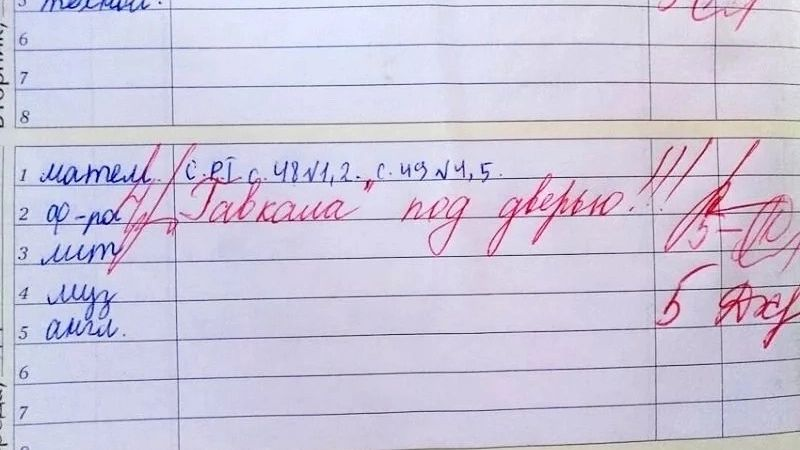 6
7
8
1 матем. С. РТ с. 48 №1, 2. с. 49 №4, 5.
2 ф-ра "Гавкала" под дверью!!!
3 лит
4 муз
5 англ. 5
6
7